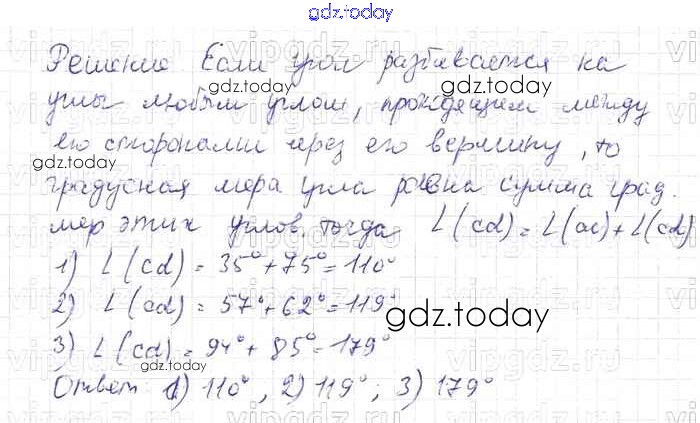 gdz.today
Решение Если угол разбивается на
gdz.today
углы любым углом, проходящем между
его сторонами через его вершину, то
gdz.today
градусная мера угла равна сумма град.
мер этих углов. тогда L(cd) = L(ac) + L(cd)
1) L(cd) = 35° + 75° = 110°
2) L(cd) = 57° + 62° = 119°
gdz.today
3) L(cd) = 94° + 85° = 179°
Ответ 1) 110°, 2) 119°; 3) 179°